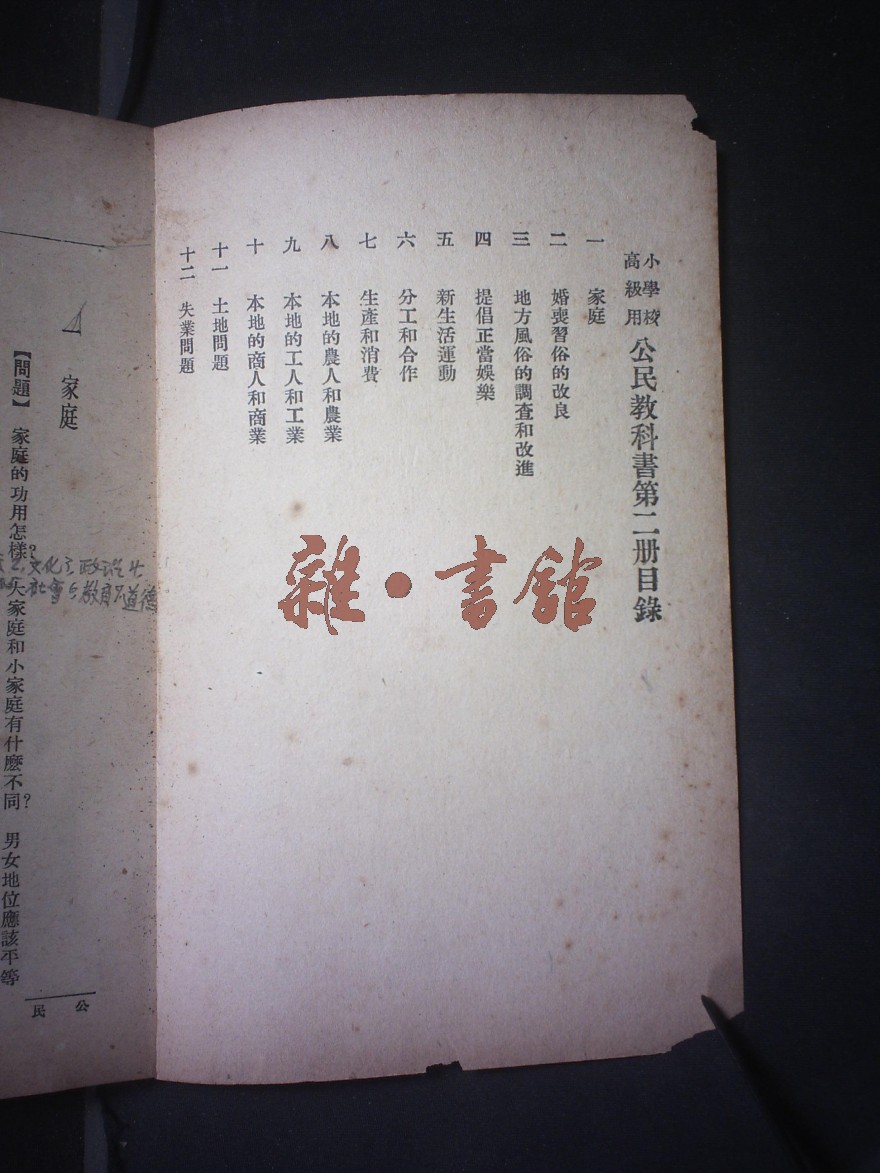 小學校高級用 公民教科書第二册目錄
一 家庭
二 婚喪習俗的改良
三 地方風俗的調查和改進
四 提倡正當娛樂
五 新生活運動
六 分工和合作
七 生產和消費
八 本地的農人和農業
九 本地的工人和工業
十 本地的商人和商業
十一 土地問題
十二 失業問題
雜·書館
家庭
【問題】 家庭的功用怎樣？大家庭和小家庭有什麼不同？ 男女地位應該平等
文化 政治
社會 教育 道德
公民